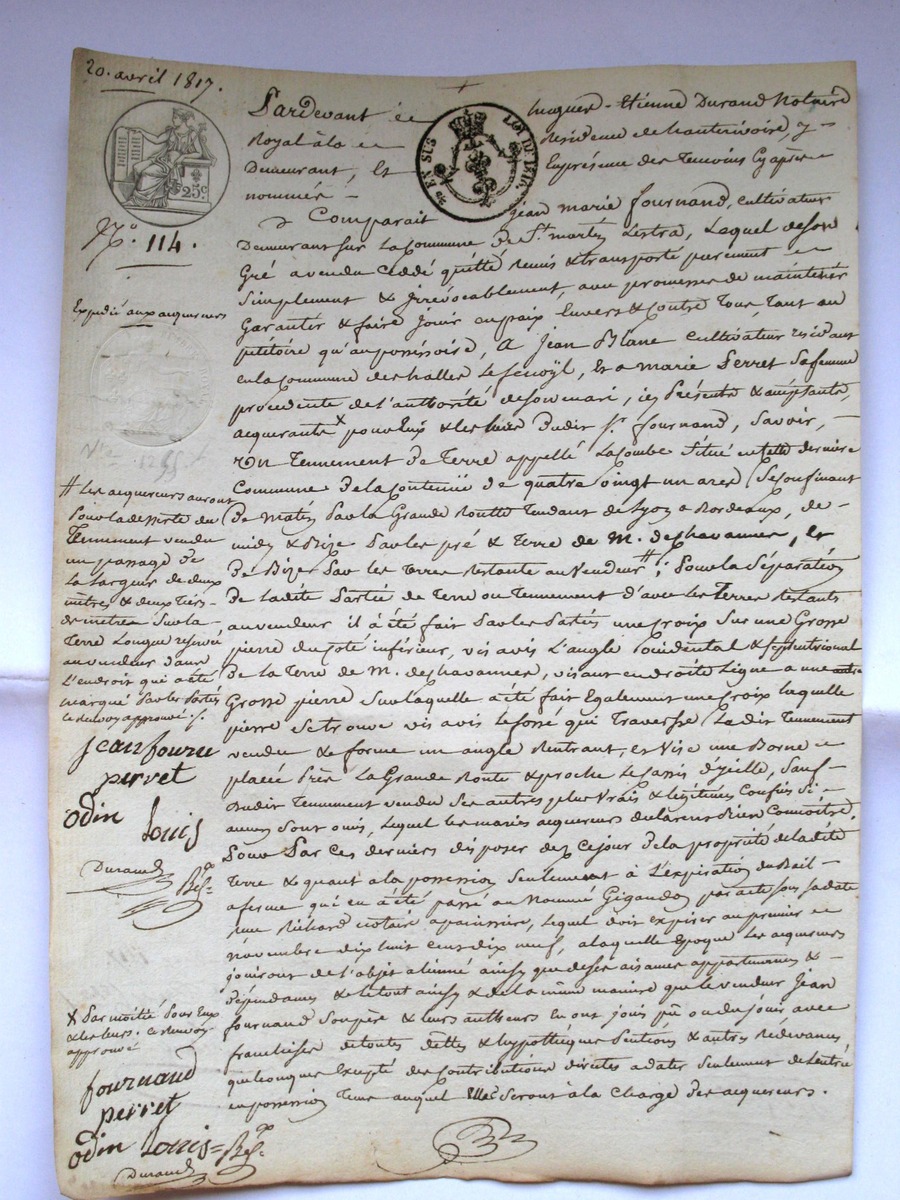 20. avril 1817.
Pardevant Me Hugues-Etienne Durand Notaire
Royal à la Residence de hauterivoire, y
Demeurant, Et En présence des Temoins Cy après
nommés
Comparait jean marie fournand, cultivateur
Demeurant sur La Commune de St. martin Lestra, Lequel de son
Gré a vendu cedé quitté remis & transporté purement &
Simplement & irrévocablement, avec promesse de maintenir
Garantir & faire jouir en paix Envers & Contre Tous, Tant au
petitoire qu'au possessoire, A jean Blanc cultivateur residant
en la Commune des halles Le fenoÿl, Et a marie Perret Sa femme
procedente de l'authorité de son mari, ici Présents & acceptants,
acquerants x pour Eux & les leurs dudit Sr. fournand, Savoir,
Un Tennement De Terre appellé La Combe Situé en cette derniere
Commune De la Contenüe de quatre vingt un ares Se confinant
De matin Par la Grande Routte Tendant de Lyon a Bordeaux, de
midy & Bize Par les pré & Terre de M. deschavannes, Et
De Bize Par les Terres restante au vendeur #; Pour la Séparation
De ladite Partie de Terre ou Tennement d'avec les Terres restants
au vendeur il a été fait Par les Partis une croix Sur une Grosse
pierre du Coté inférieur, vis avis L'angle occidental & septentrional
De la Terre de M. deschavannes, visant en droite Ligne a une autre
Grosse pierre Sur laquelle a été fait Egalement une croix laquelle
pierre Se trouve vis avis le fossé qui Traverse Ledit Tennement
vendu & forme un angle Rentrant, et vise une Borne
placée Près La Grande Route & proche Sauf
Dudit Tennement vendu Ses autres plus vrais & légitimes Confins Si
aucuns Sont omis, lequel les mariés acquereurs déclarent bien Connoitre,
Pour Par ces derniers disposer dez Ce jour de la propriété de ladite
Terre & quant a la possession Seulement à L'Expiration du Bail
a ferme qui en a été passé au Nommé Gigandon par acte sous sa date
Richard notaire a panissiere, Lequel doit expirer au premier
novembre dix huit cent dix neuf, a laquelle Epoque Les acquereurs
jouiront de l'objet aliénné ainsy que de ses aisances appartenances &
Dépendances & le tout ainsy & de la même maniere que le vendeur Jean
fournand Son père & leurs autheurs En ont joui pû ou du jouir avec
franchises de toutes dettes & hypothéques Pentions & autres Rédevances
quelconques Excepté des Contributions directes a dater Seulement de l'entrée
en possession Tems auquel Elles Seront à la Charge des acquereurs.
EN SUS
LOI DE 1816
25c
No. 114.
Expedié aux acquereurs
# Les acquereurs auront
Pour la desserte du
Tennement vendu
un passage de
La Largeur de deux
mètres & deux Tiers
de mètres Sur la
Terre Longue reservé
au vendeur dans
L'endroit qui a été
marqué Par les Partis
Ce renvoy approuvé ./.
jean fourn
pervet
odin Louis
Durand
x Par moitié Pour Eux
& les leurs. Ce renvoy
approuvé
fournand
perret
odin Louis
Durand